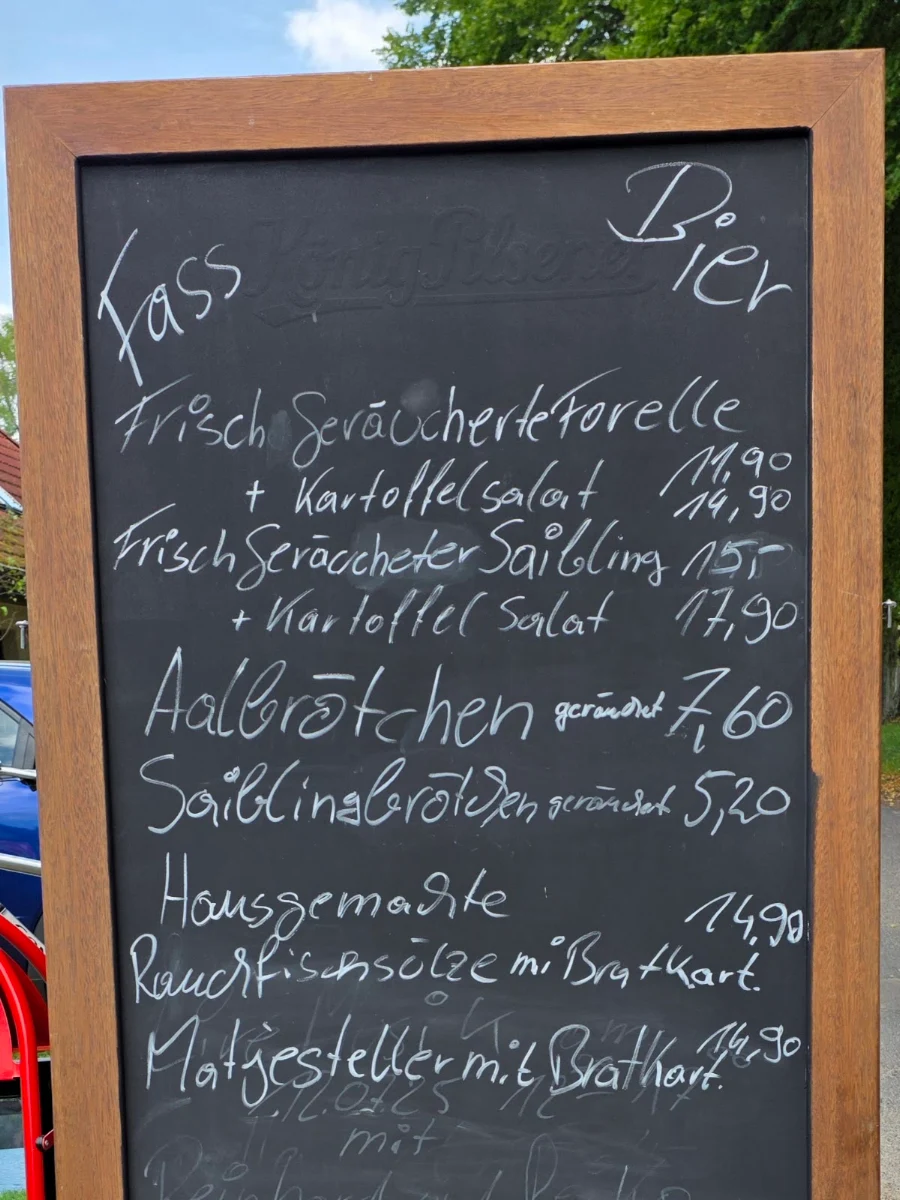 König Pilsener
Fass Bier
Frisch Geräucherte Forelle 11,90
+ Kartoffelsalat 14,90
Frisch Geräucheter Saibling 15,-
+ Kartoffel Salat 17,90
Aalbrötchen geräuchert 7,60
Saiblingbrötchen geräuchert 5,20
Hausgemachte 14,90
Rauchfischsülze mi Bratkart.
Matjesteller mit Bratkart. 14,90
mit